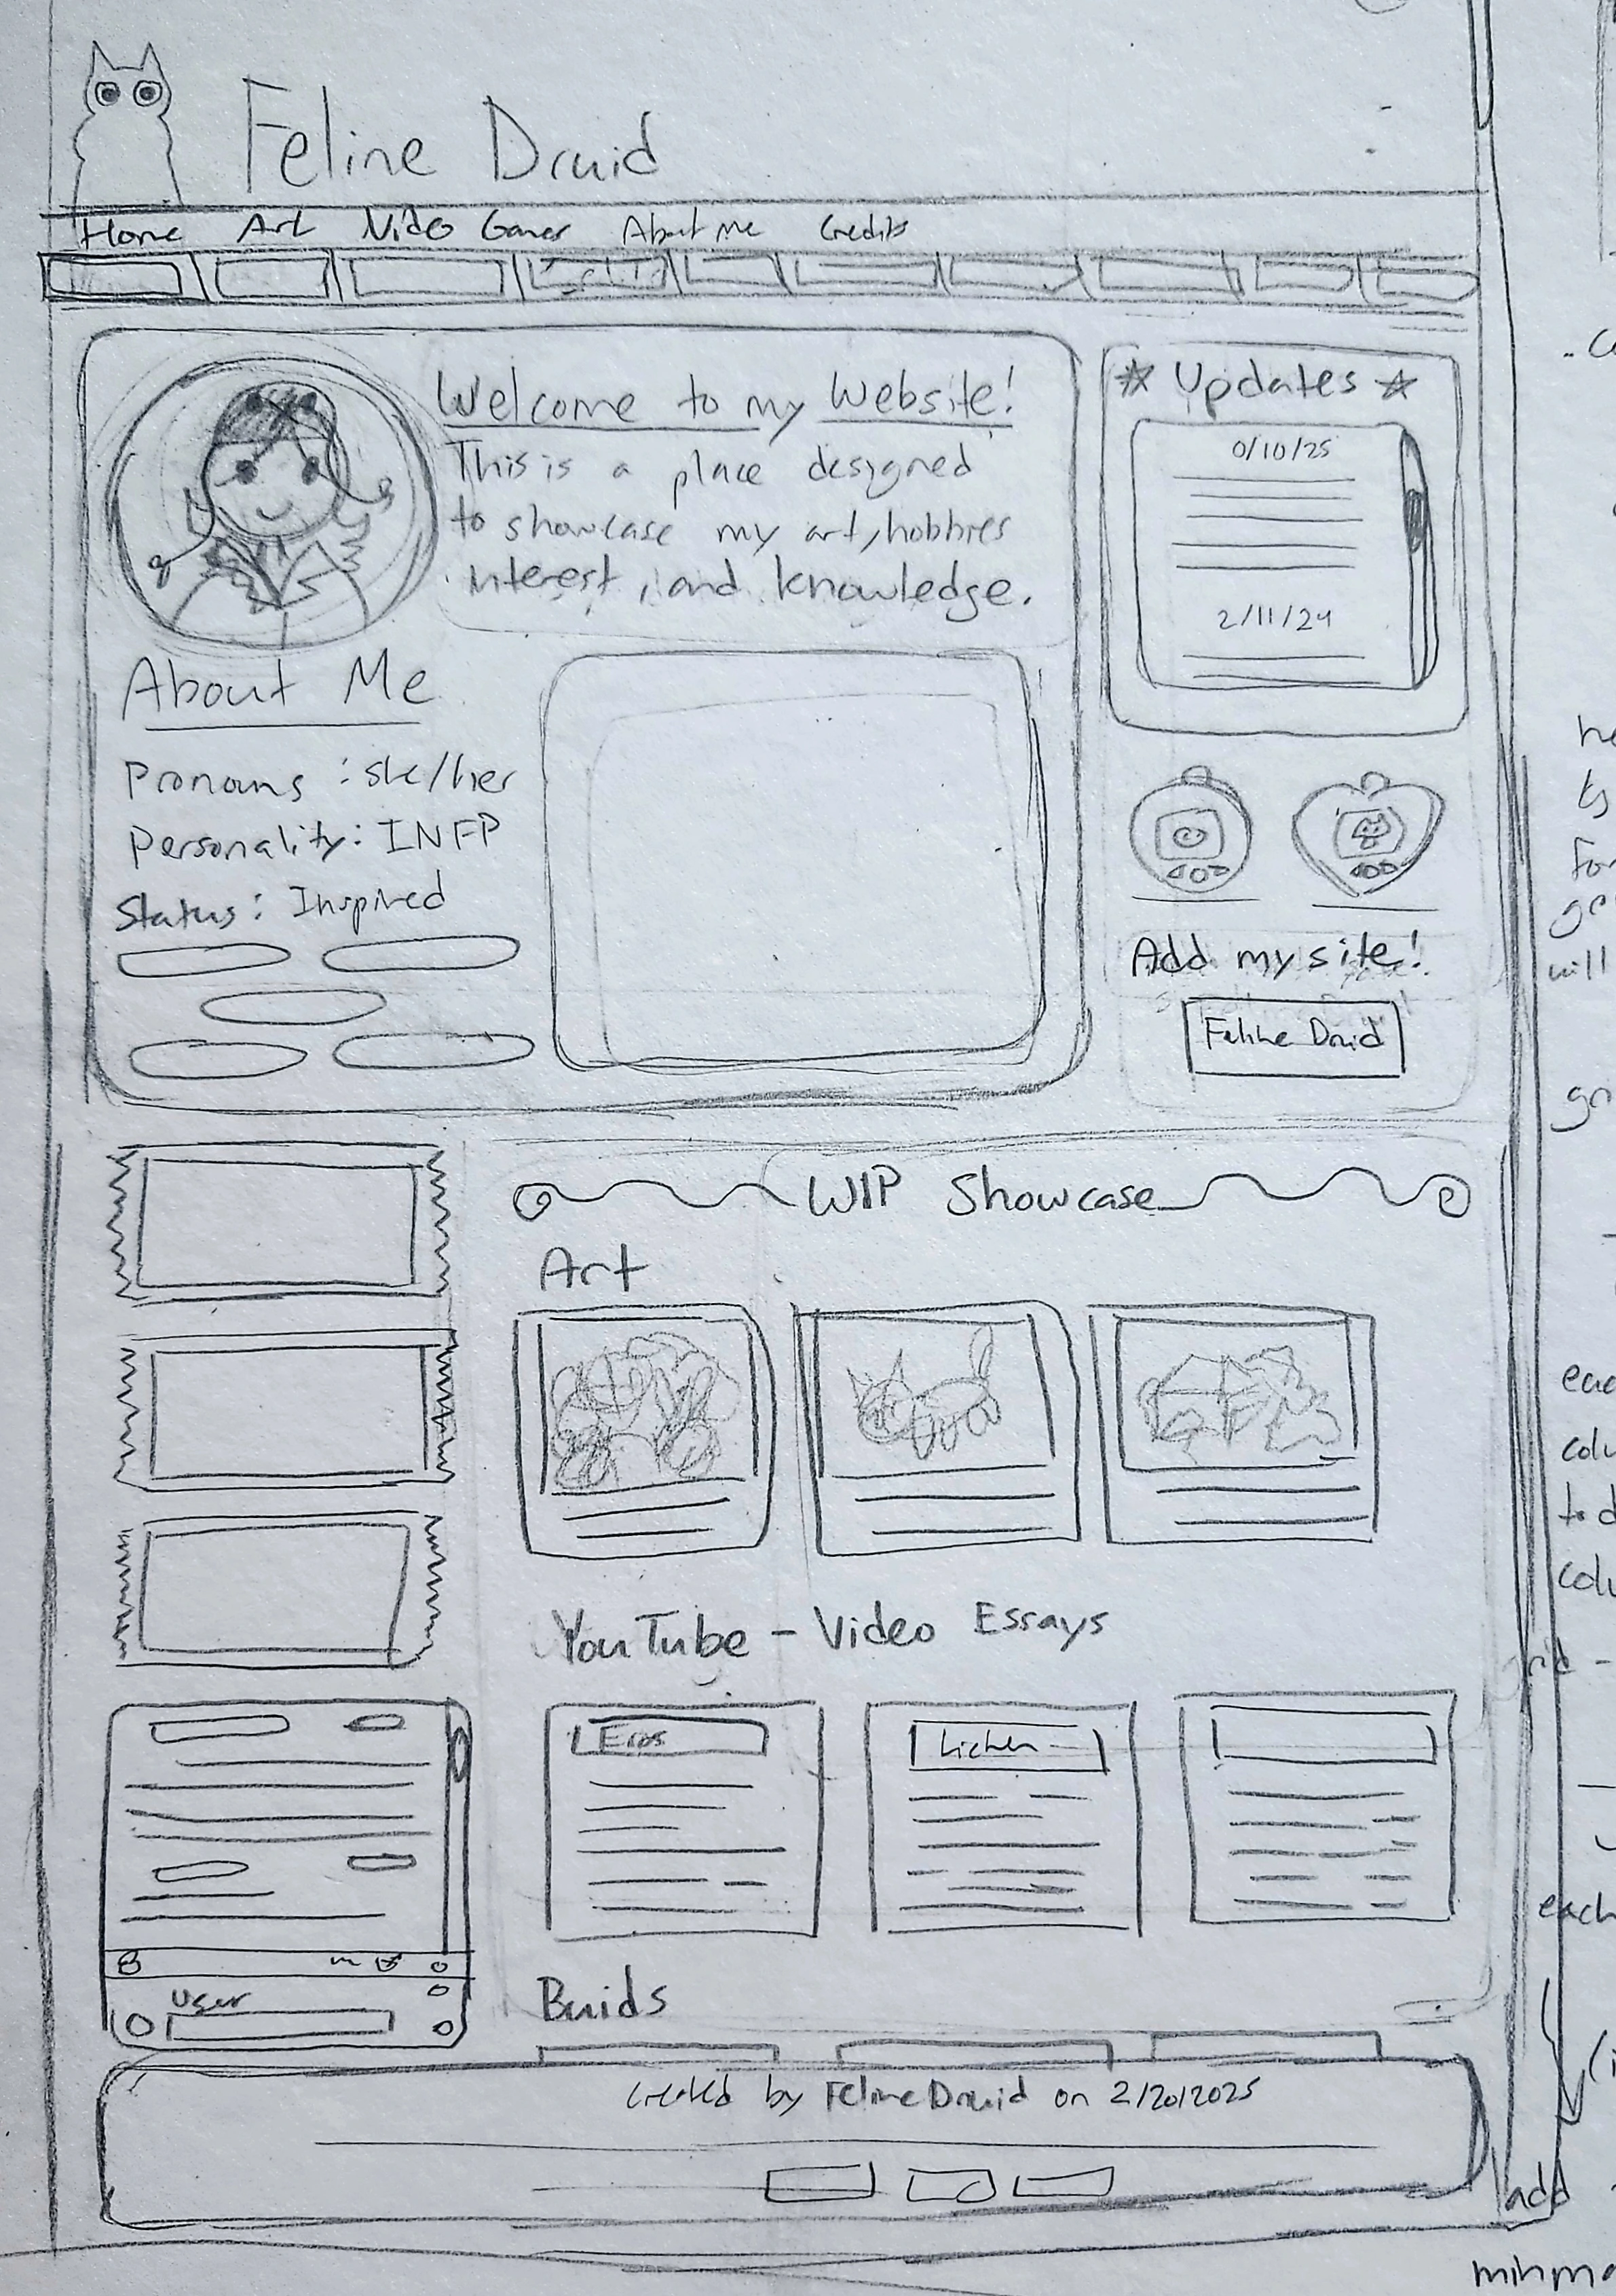 Feline Druid
Home Art Video Games About Me Credits
Welcome to my Website!
This is a place designed
to showcase my art, hobbies
interest, and knowledge.
☆ Updates ☆
0/10/25
2/11/24
About Me
Pronouns : she/her
Personality: INFP
Status: Inspired
Add my site!
Feline Druid
WIP Showcase
Art
YouTube - Video Essays
Lichen
User
Buids
created by Feline Druid on 2/20/2025
for
will
to d
colu
each
add